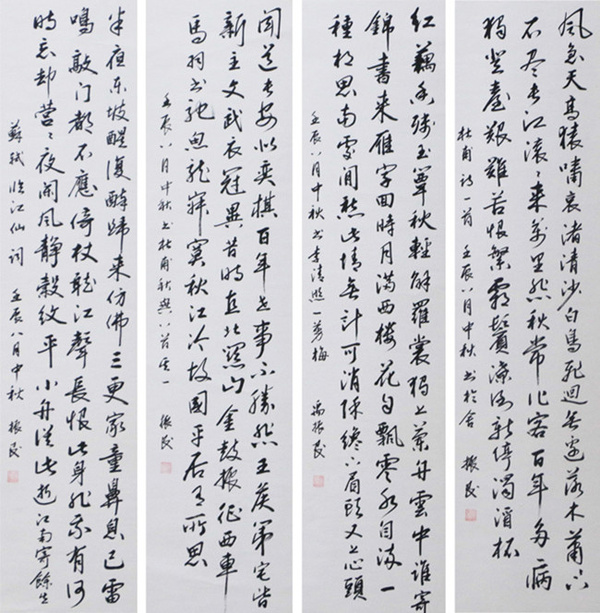 風急天高猿嘯哀渚清沙白鳥飛迴無邊落木蕭〻下
不盡長江滾〻來萬里悲秋常作客百年多病
獨登臺艱難苦恨繁霜鬢潦倒新停濁酒杯
杜甫詩一首 壬辰八月中秋書於舍 振民
紅藕香殘玉簟秋輕解羅裳獨上蘭舟雲中誰寄
錦書來雁字回時月滿西樓花自飄零水自流一
種相思兩處閒愁此情無計可消除纔下眉頭又上心頭
壬辰八月中秋書李清照一剪梅 禹振民
聞道長安似弈棋百年世事不勝悲王侯第宅皆
新主文武衣冠異昔時直北關山金鼓振征西車
馬羽書馳魚龍寂寞秋江冷故國平居有所思
壬辰八月中秋書杜甫秋興八首其一 振民
半夜東坡醒復醉歸來仿佛三更家童鼻息已雷
鳴敲門都不應倚杖聽江聲長恨此身非我有何
時忘卻營〻夜闌風靜縠紋平小舟從此逝江海寄餘生
蘇軾臨江仙詞 壬辰八月中秋 振民